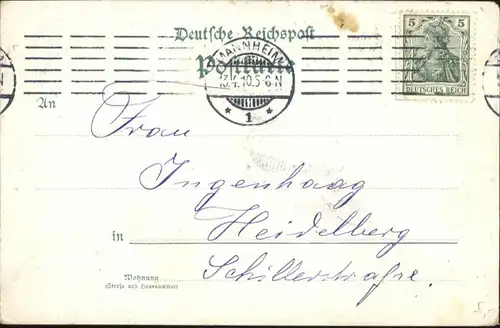 Deutsche Reichspost
Postkarte
MANNHEIM
13.4.10.5-6 N
* 1 *
5 5
DEUTSCHES REICH
An
Frau
Ingenhaag
in Heidelberg
Schillerstraſse.
Wohnung
(Straße und Hausnummer)